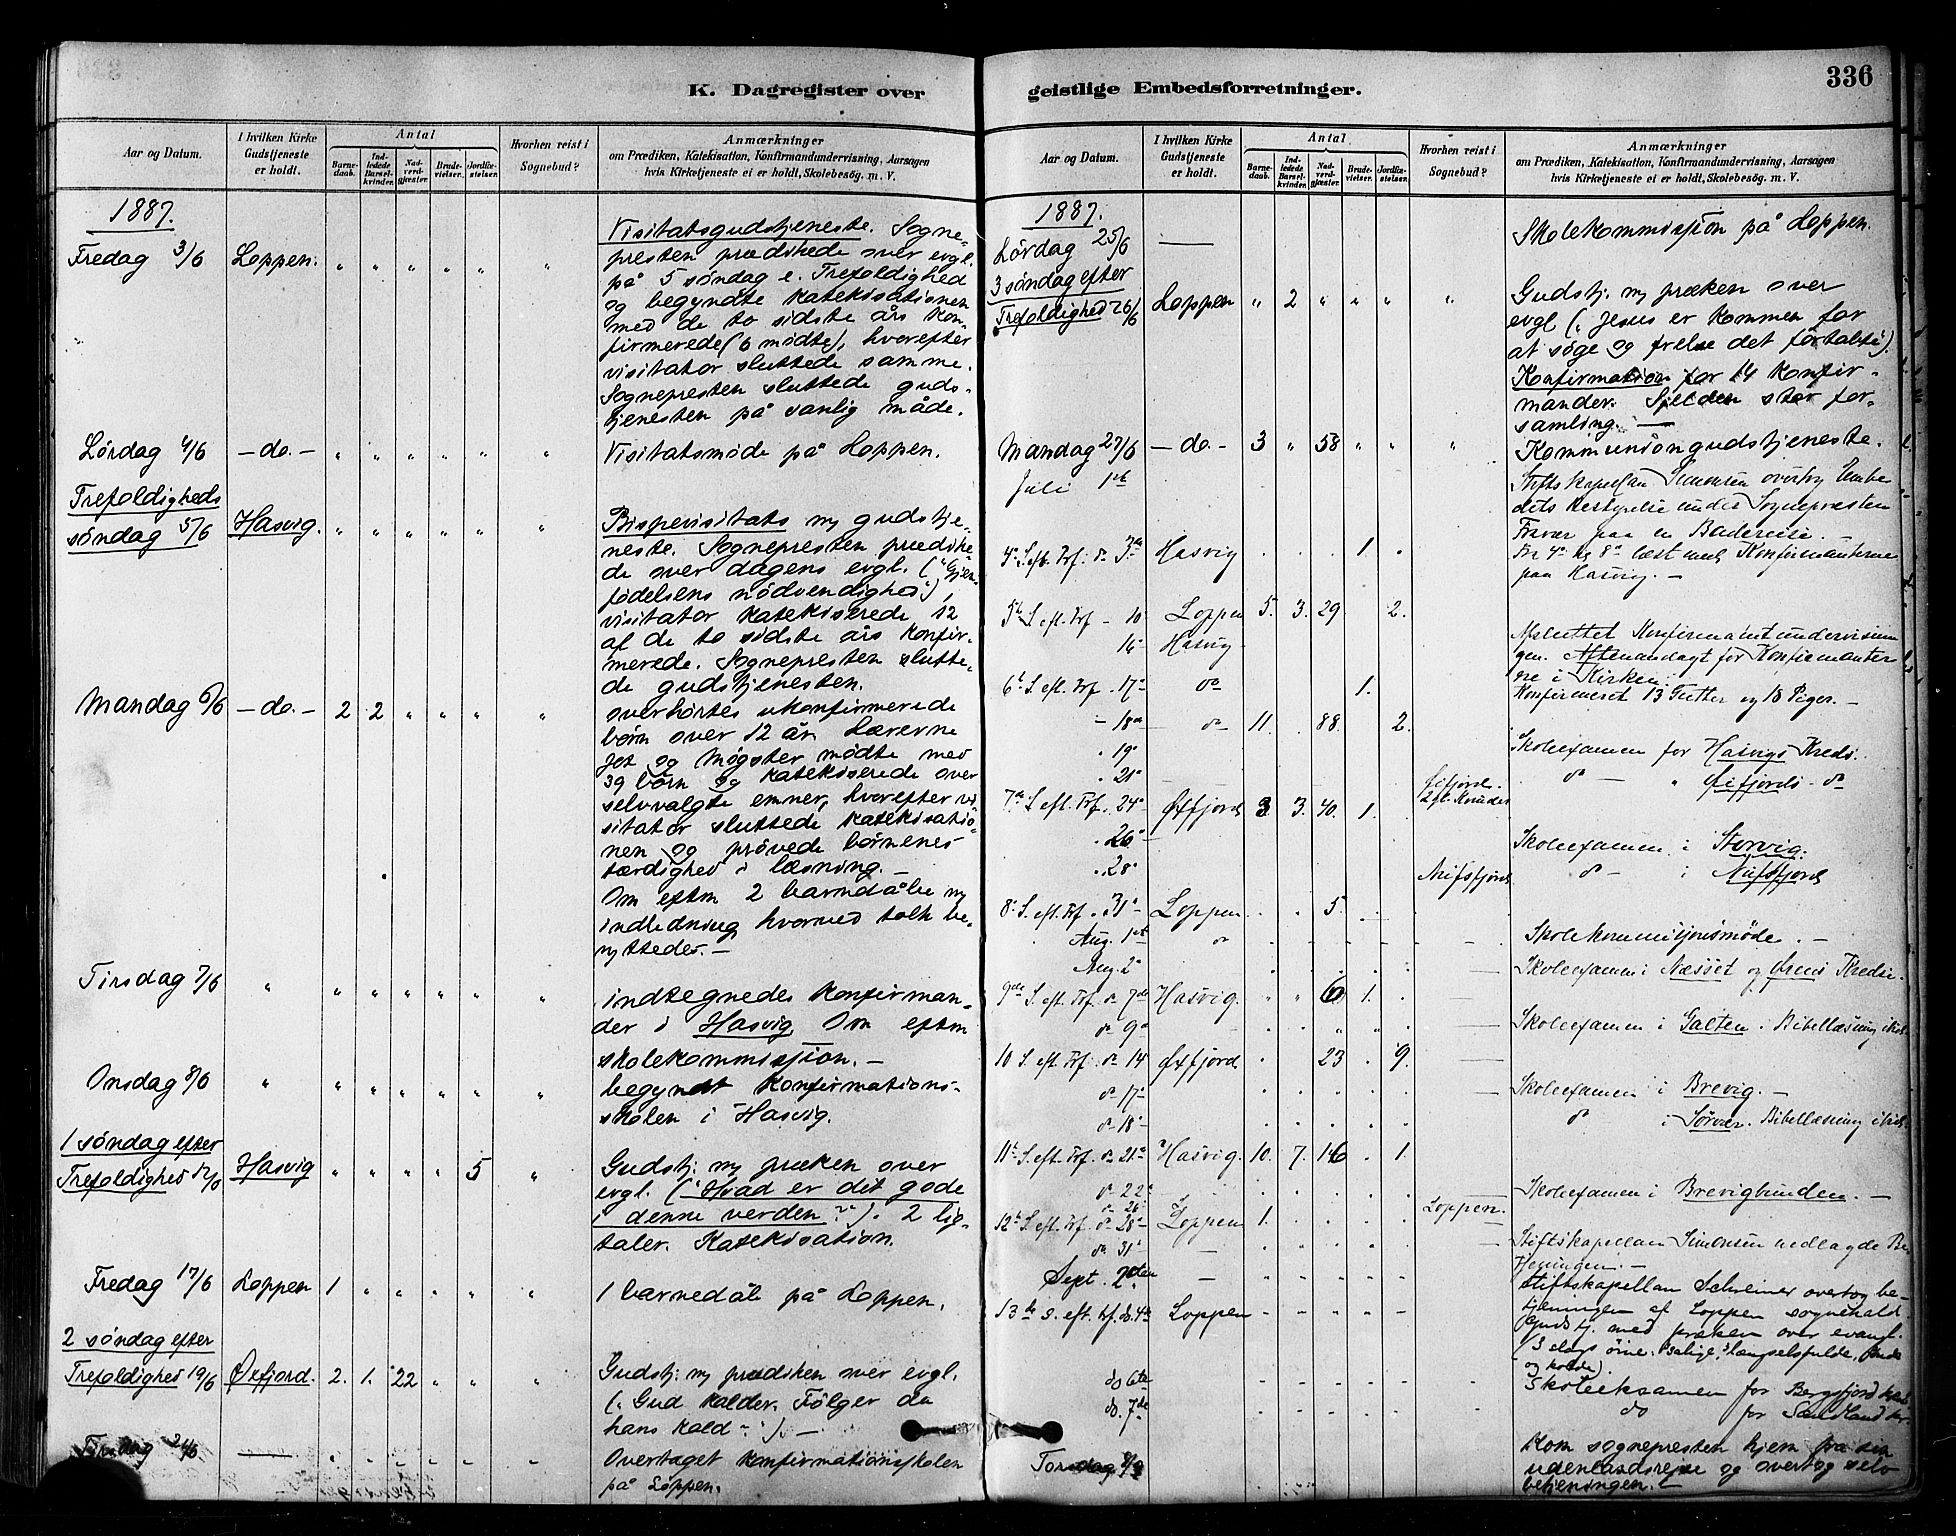 336
K. Dagregister over
Aar og Datum.
I hvilken Kirke Gudstjeneste er holdt.
Antal
Barnedaab.
Indledede Barselkvinder.
Nadverdgjæster.
Brudevielser.
Jordfæstelser.
Hvorhen reist i Sognebud?
Anmærkninger
om Prædiken, Katekisation, Konfirmandundervisning, Aarsagen
hvis Kirketjeneste ei er holdt, Skolebesøg. m. V.
1887.
Visitatsgudstjeneste. Sogne-
Fredag 3/6 Loppen. " " " " " " presten prædikede over evgl.
på 5 søndag e. Trefoldighed
og begyndte katekisationen
med de to sidste års kon-
firmerede (6 mødte), hvorefter
visitator sluttede samme.
Sognepresten sluttede guds-
tjenesten på vanlig måde.
Lørdag 4/6 - do. - " " " " " " Visitatsmøde på Loppen.
Trefoldigheds
søndag 5/6 Hasvig. " " " " " " Bispevisitats m/ gudstje-
neste. Sognepresten prædike-
de over dagens evgl. ("Gjen-
fødelsens nødvendighed"),
visitator katekiserede 12
af de to sidste års konfir-
merede. Sognepresten slutte-
de gudstjenesten.
Mandag 6/6 - do. - 2 2 " " " " overhørtes ukonfirmerede
børn over 12 år. Lærerne
og Møgster mødte med
39 børn og katekiserede over
selvvalgte emner, hvorefter vi-
sitator sluttede katekisatio-
nen og prøvede børnenes
færdighed i læsning. -
Om eftm 2 barnedåbe m/
indledning, hvorved tolk be-
nyttedes. -
Tirsdag 7/6 " " " " " " " indtegnedes konfirman-
der i Hasvig. Om eftm
skolekommission. -
Onsdag 8/6 " " " " " " " begyndt konfirmations-
skolen i Hasvig.
1 søndag efter
Trefoldighed 12/6 Hasvig " " " " 5 " Gudstj. m/ præken over
evgl. ("Hvad er det gode
i denne verden?"). 2 lig-
taler. Katekisation.
Fredag 17/6 Loppen 1 " " " " " 1 barnedåb på Loppen.
2 søndag efter
Trefoldighed 19/6 Øxfjord. 2. 1. 22 " " " Gudstj. m/ prædiken over evgl.
(: Gud kalder. Følger du
hans kald?). -
Overtaget konfirmationsskolen
på Loppen.
geistlige Embedsforretninger.
Aar og Datum.
I hvilken Kirke Gudstjeneste er holdt.
Antal
Barnedaab.
Indledede Barselkvinder.
Nadverdgjæster.
Brudevielser.
Jordfæstelser.
Hvorhen reist i Sognebud?
Anmærkninger
om Prædiken, Katekisation, Konfirmandundervisning, Aarsagen
hvis Kirketjeneste ei er holdt, Skolebesøg. m. V.
1887.
Lørdag 25/6 — Skolekommission på Loppen.
3 søndag efter
Trefoldighed 26/6 Loppen " 2 " " " " Gudstj. m/ præken over
evgl (: Jesus er kommen for
at søge og frelse det fortabte).
Konfirmation for 14 konfir-
mander. Sjelden stor for-
samling. —
Mandag 27/6 - do - 3 " 58 " " " Kommuniongudstjeneste.
Juli 1ste Stiftskapellan Simonsen overtog Embe-
dets Bestyrelse under Sognepresten
Fravær paa en Badereise. -
4de S. eft. Trf. do 3die Hasvig . . . 1. . Fra 4de til 8de læst med Konfirmanterne
paa Hasvig. -
5te S. eft. Trf - 10 Loppen 5. 3. 29 2.
16 Hasvig Afsluttet Konfirmantundervisnin-
gen. Aftenandagt for Konfirmanter
ne i Kirken.
6te S. eft. Trf. 17de do 1. Konfirmeret 13 Gutter og 18 Piger. -
- 18de do 11. 88. 2.
" 19de Skoleexamen for Hasvigs Kreds.
" 21de do — " Øxfjords - do
7de S. eft. Trf. 24de Øxfjord 3 3. 40. 1. Øxfjord.
" 26de Skoleexamen i Storvig.
" 28de Nufsfjord do - i Nufsfjord
8de S. eft. Trf. 31te Loppen . " 5. . .
Aug. 1ste do Skolekommisjonsmøde. -
Aug. 2de Skoleexamen i Næsset og Ørens Kredse.
9de S. eft. Trf. do 7de Hasvig. " " 6 1. .
do 9de Skoleexamen i Galten. Bibellæsning
10 S. eft. Trf. do 14 Øxfjord . 23 . 9.
do 17de Skoleexamen i Brevig. -
do 18de do i Sørvær. Bibellæsning
11te S. eft. Trf. do 21de Hasvig. 10. 7. 16 . 1.
do 22de Skoleexamen i Brevigbunden. -
do 26de Loppen.
12te S. eft. Trf. do 28de Loppen 1. . . . .
do 31te Stiftskapellan Simonsen nedlagde Be-
tjeningen. -
Sept. 2den — Stiftskapellan Schreiner overtog be-
tjeningen af Loppen sognekald
13de s. eft. trf. do. 4de Loppen - - - - - Gudstj. med præken over evangl.
(3 slags øine: Salige, længselsfulde,
og kolde)
do 6te Skoleeksamen for Bergsfjord
do. 7de do for Sandland kr.
Torsdag 8/9 Kom sognepresten hjem fra sin
udenlandsreise og overtog selv
betjeningen. -